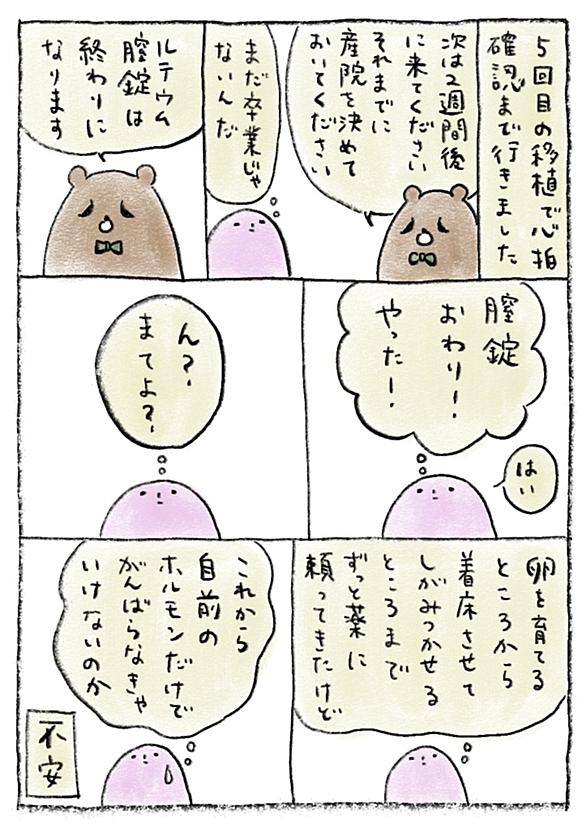 5回目の移植で心拍
確認まで行きました
次は2週間後
に来てください
それまでに
産院を決めて
おいてください
まだ卒業じゃ
ないんだ
ルテウム
膣錠は
終わりに
なります
膣錠
おわり！
やったー！
はい
ん？
まてよ？
卵を育てる
ところから
着床させて
しがみつかせる
ところまで
ずっと薬に
頼ってきたけど
これから
自前の
ホルモンだけで
がんばらなきゃ
いけないのか
不安